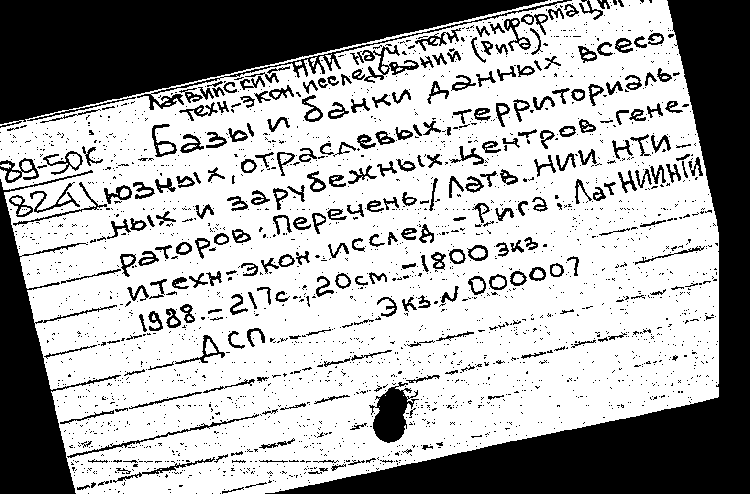 Латвийский НИИ науч.-техн. информации и
техн.-экон. исследований (Рига).
89-50К Базы и банки данных всесо-
82Д юзных, отраслевых, территориаль-
ных и зарубежных центров-гене-
раторов: Перечень / Латв. НИИ НТИ
и техн.-экон. исслед. - Рига: ЛатНИИНТИ
1988. - 217с.; 20см. - 1800 экз.
ДСП. Экз. N 000007